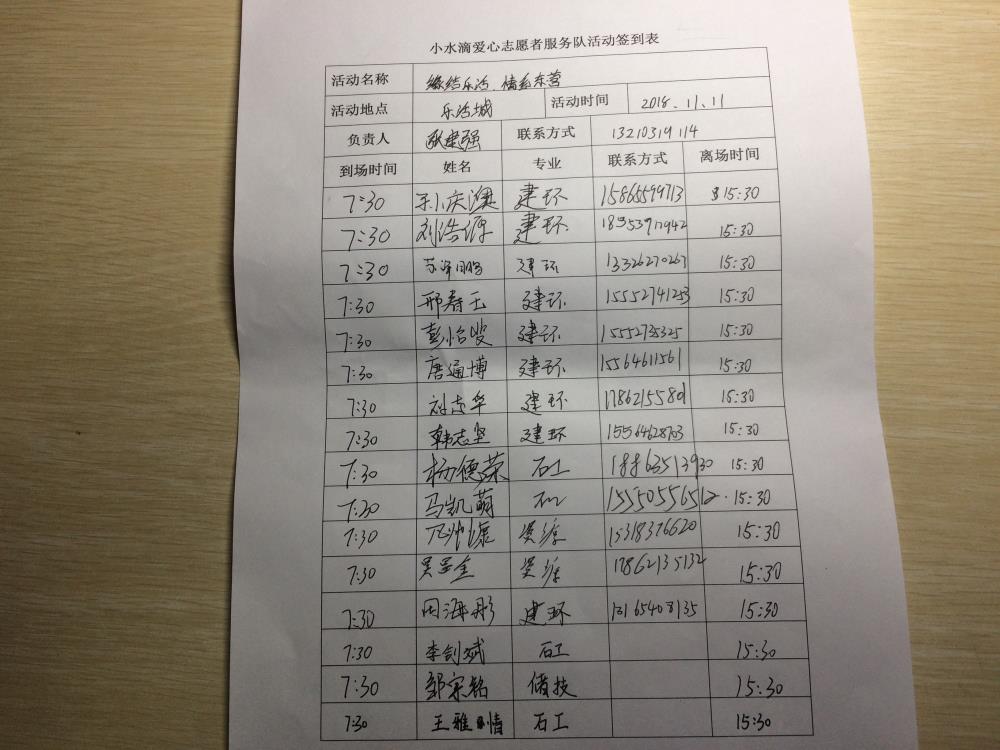 小水滴爱心志愿者服务队活动签到表
活动名称 缘结乐活、情系东营
活动地点 乐活城 活动时间 2018.11.11
负责人 张建强 联系方式 13210319114
到场时间 姓名 专业 联系方式 离场时间
7:30 建环 15865599713 15:30
7:30 刘浩源 建环 18353917942 15:30
7:30 建环 13326270267 15:30
7:30 邢春玉 建环 15552741253 15:30
7:30 彭怡 建环 15552735325 15:30
7:30 唐通博 建环 15564611561 15:30
7:30 刘志华 建环 17862155801 15:30
7:30 韩志坚 建环 15564628703 15:30
7:30 杨德荣 石工 18863513930 15:30
7:30 马凯萌 石工 15550556512 15:30
7:30 资源 15318376620 15:30
7:30 资源 17862135132 15:30
7:30 周海彤 建环 13165408135 15:30
7:30 李剑斌 石工 15:30
7:30 邹宗铭 储技 15:30
7:30 王雅情 石工 15:30